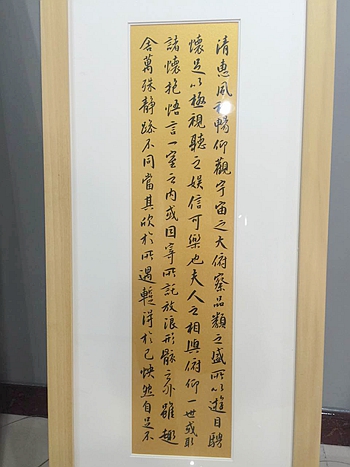 清惠風和暢仰觀宇宙之大俯察品類之盛所以遊目騁
懷足以極視聽之娛信可樂也夫人之相與俯仰一世或取
諸懷抱悟言一室之內或因寄所託放浪形骸之外雖趣
舍萬殊靜躁不同當其欣於所遇暫得於己怏然自足不